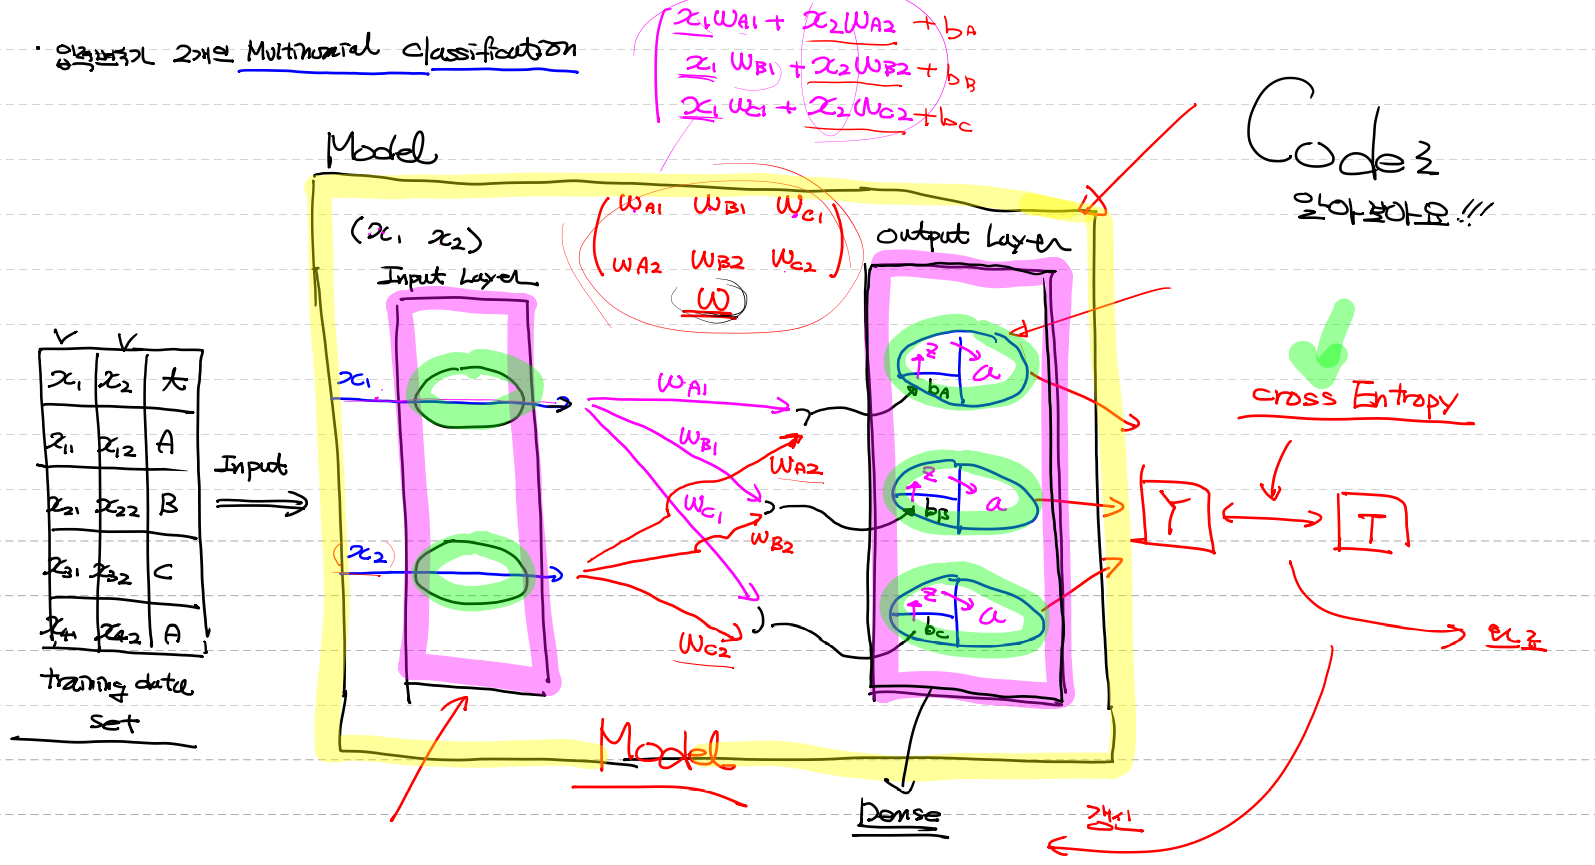 · 입력변수가 2개인 Multinomial Classification
x₁W_A1 + x₂W_A2 + b_A
x₁ W_B1 + x₂W_B2 + b_B
x₁ W_C1 + x₂ W_C2 + b_C
Code로
알아보아요!!!
Model
(x₁ x₂)
W_A1 W_B1 W_C1
W_A2 W_B2 W_C2
W
Input Layer
Output Layer
x₁ x₂ t
x₁₁ x₁₂ A
x₂₁ x₂₂ B
x₃₁ x₃₂ C
x₄₁ x₄₂ A
training data
set
Input
x₁
x₂
W_A1
W_B1
W_C1
W_A2
W_B2
W_C2
z a
b_A
z a
b_B
z a
b_C
Cross Entropy
Y
T
완료
갱신
Model
Dense